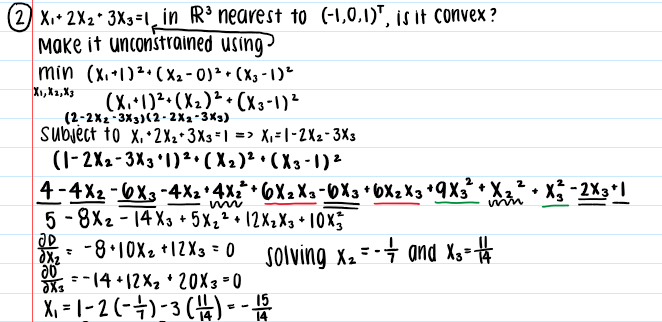 ② X₁+2X₂+3X₃=1 in ℝ³ nearest to (-1,0,1)ᵀ, is it convex?
Make it unconstrained using
min (X₁+1)²+(X₂-0)²+(X₃-1)²
X₁,X₂,X₃ (X₁+1)²+(X₂)²+(X₃-1)²
(2-2X₂-3X₃)(2-2X₂-3X₃)
Subject to X₁+2X₂+3X₃=1 => X₁=1-2X₂-3X₃
(1-2X₂-3X₃+1)²+(X₂)²+(X₃-1)²
4-4X₂-6X₃-4X₂+4X₂²+6X₂X₃-6X₃+6X₂X₃+9X₃²+X₂²+X₃²-2X₃+1
5-8X₂-14X₃+5X₂²+12X₂X₃+10X₃²
∂D/∂X₂ = -8+10X₂+12X₃=0 solving X₂=-1/7 and X₃=11/14
∂D/∂X₃ = -14+12X₂+20X₃=0
X₁=1-2(-1/7)-3(11/14)=-15/14